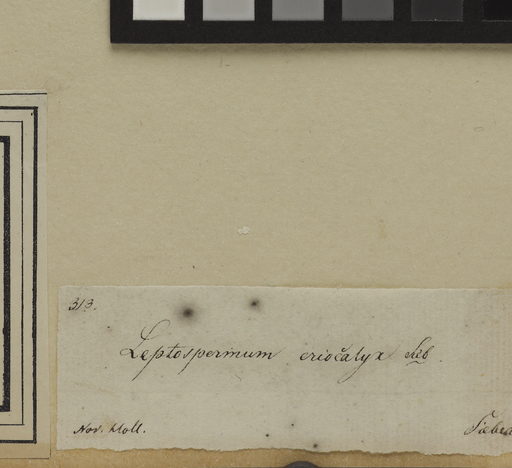 313.
Leptospermum eriocalyx Sieb.
Nov. Holl.